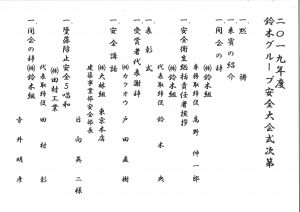 二〇一九年度
鈴木グループ安全大会式次第
一 黙祷
一 来賓の紹介
一 開会の辞 ㈱鈴木組
専務取締役 高野 伸一郎
一 安全衛生総括責任者挨拶
㈱鈴木組
代表取締役 鈴木 央
一 表彰式
一 受賞者代表謝辞
㈱カクオウ 戸田 直樹
一 安全講話
㈱大林組 東京本店
建築事業部安全部長
日向 英二 様
一 墜落防止安全5唱和
㈱田村工業
代表取締役 田村 彰
一 閉会の辞 ㈱鈴木組
寺井 明彦